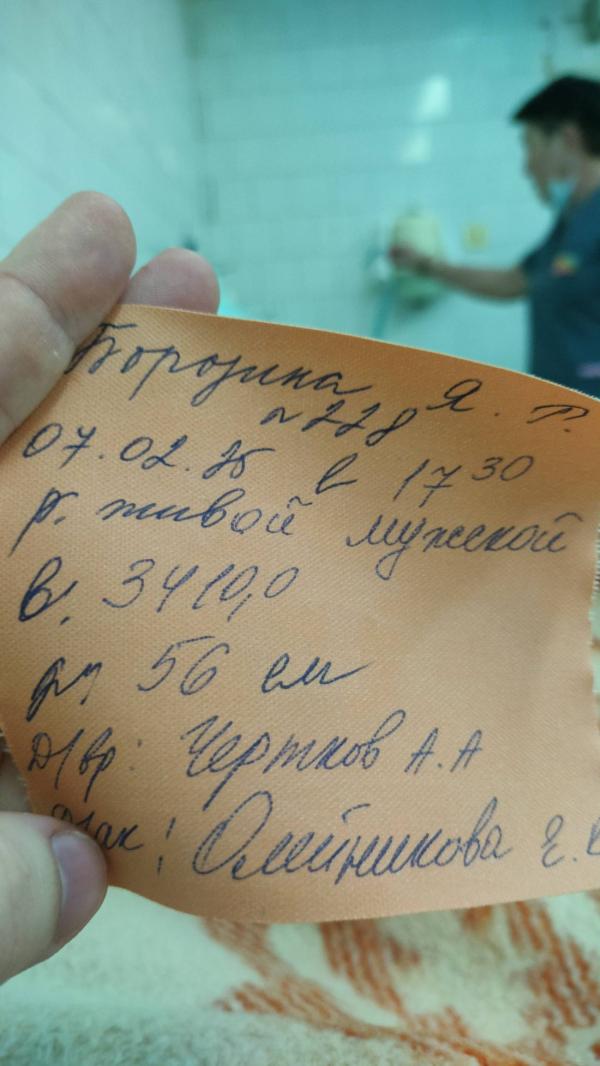 Борозина Я. Р.
№228
07.02.25 в 17 30
р. живой мужской
в. 3410,0
р, 56 см
Д/вр: Чертков А.А
Д/ак: Олейникова Е.